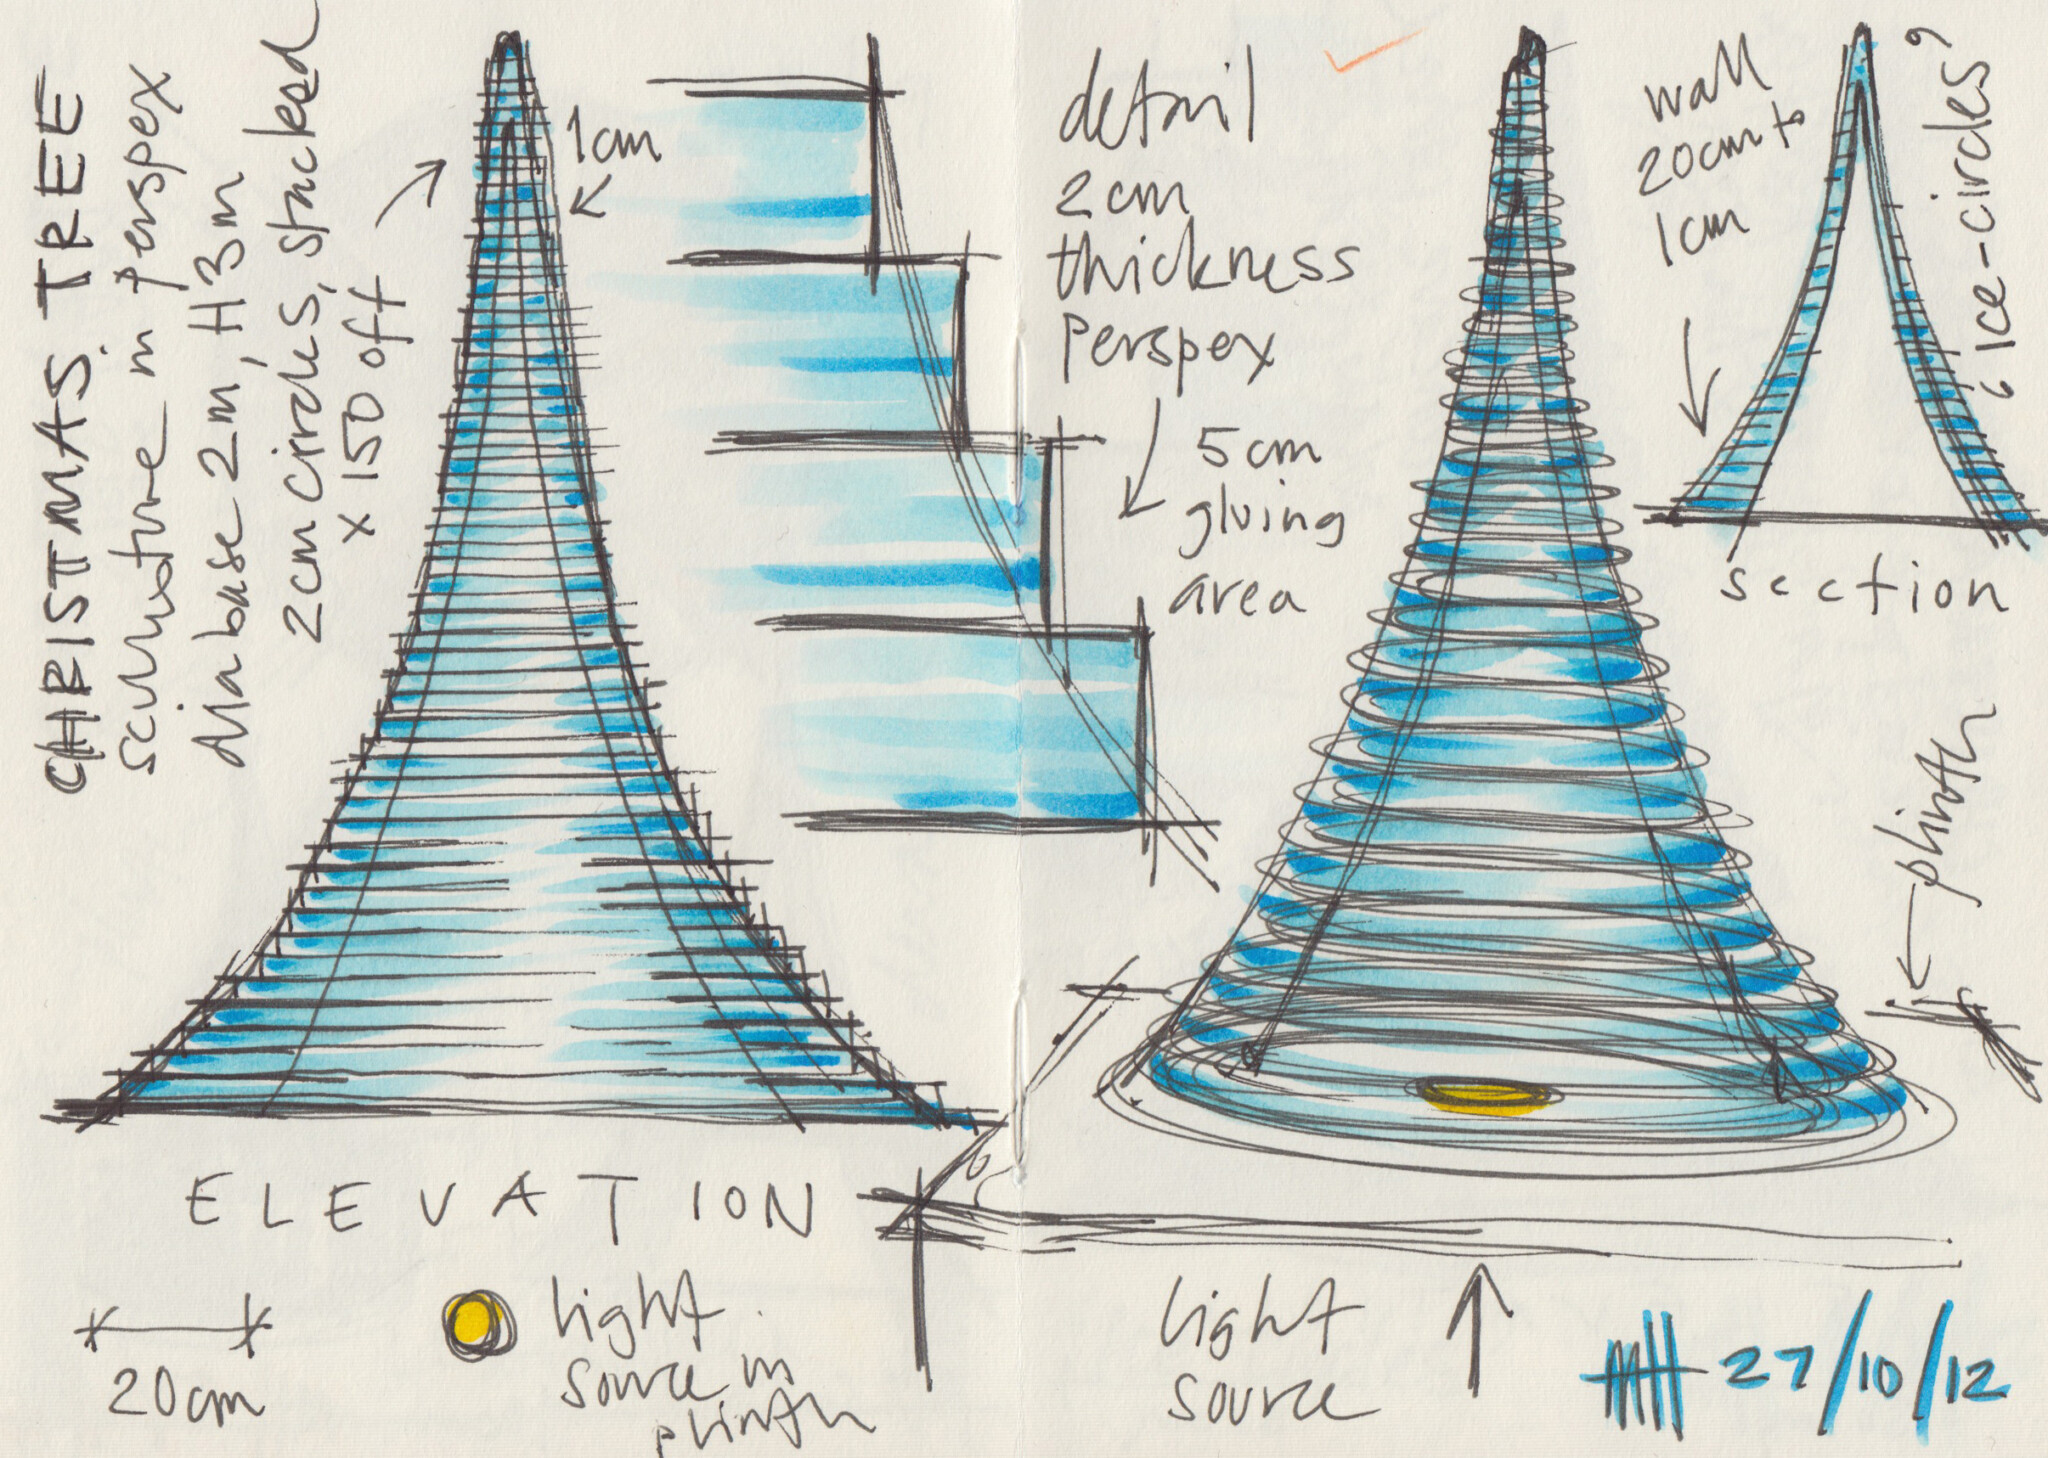 CHRISTMAS TREE
sculpture in perspex
dia base 2m, H 3m
2cm circles, stacked
x 150 off
1cm
detail
2cm
thickness
perspex
5cm
gluing
area
wall
20cm to
1cm
'ice-circles'
section
plinth
ELEVATION
20cm
light
source in
plinth
light
source
27/10/12